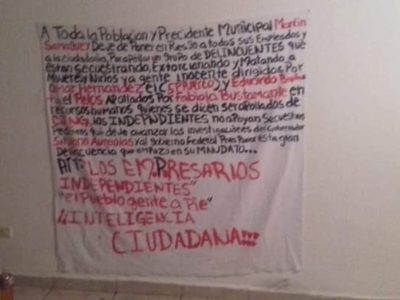 A Toda la Poblacion y Precidente Municipal Martin
Samaguey Deje de Poner en Riesgo a todos sus Empleados y
a la ciudadania, Por apoyar un grupo de DELINCUENTES que
estan secuestrando, Extorcionando y Matando a
Mujeres Niños ya gente inocente dirigidos Por
Omar Hernandez el ( y Eduardo
el Pelos Apollados Por Fabiola Bustamante en
recursos humanos, Quienes se dicen ser aliados de
CJNG, los INDEPENDIENTES no apoyan Secuestros
Pedimos que deje avanzar las investigaciones del Gobernador
Silvano Aureoles y al Gobierno Federal Para Parar Esta gran
Delincuencia que empezo en su MANDATO...
ATT: LOS EMPRESARIOS
INDEPENDIENTES"
"el Pueblo gente a Pie"
¡¡INTELIGENCIA
CIUDADANA!!!